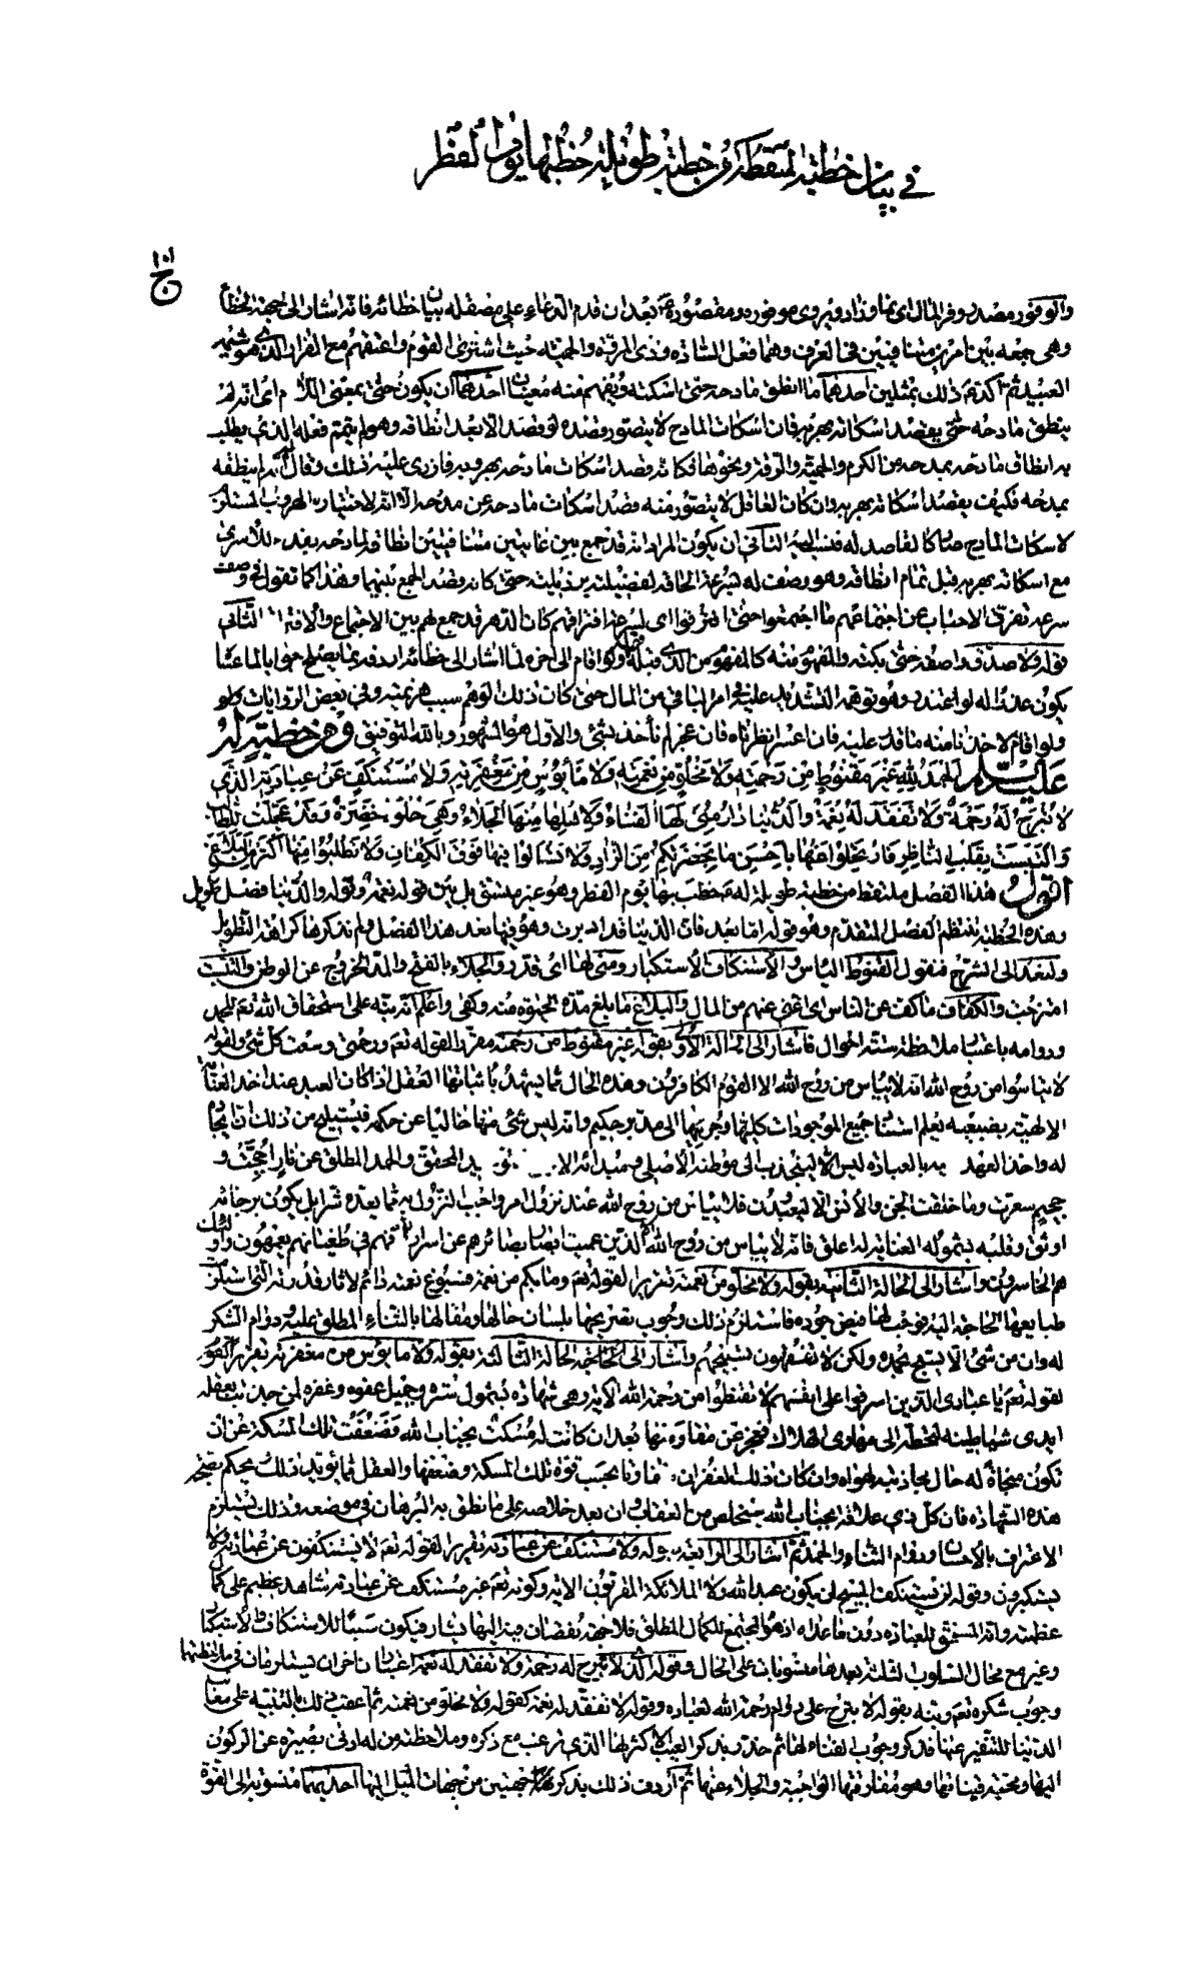 في بيان خطبته الملتقطة من خطبة طويلة خطبها يوم الفطر
١٠١
ج
والوفور مصدر وفر المال اى نما وزاد ويروى موفوره ومقصوره بعد ان قدم الدعاء على مصقله بيان خطائه فانه اشار الى جهة الخطأ
وهى جمعه بين امرين متنافيين فى العرف وهما فعل السادة وذى المروة والحمية حيث اشترى القوم واعتقهم مع الفرار الذى هو شيمة
العبيد ثم اكد ذلك بمثلين احدهما ما انطق مادحه حتى اسكته ويفهم منه معنيان احدهما ان يكون حتى بمعنى اللام اى انه لم
ينطق مادحه حتى يقصد اسكاته بهربه فان اسكات المادح لا يتصور قصده لو قصد الا بعد انطاقه وهو لم يتمم فعله الذى يطلب
به انطاق مادحه بمدحه من الكرم والحمية والرقة ونحوها فكانه قصد اسكات مادحه بهروبه فازرى عليه ذلك وقال انه لم ينطقه
بمدحه فكيف يقصد اسكاته بهربه وان كان العاقل لا يتصور منه قصد اسكات مادحه عن مدحه الا انه لاختياره الهروب المستلزم
لاسكات المادح صار كالقاصد له فنسب اليه الثانى ان يكون المراد انه قد جمع بين غايتين متنافيتين انطاقه لمادحه بفدائه للاسرى
مع اسكاته بهربه قبل تمام انطاقه وهو وصف له بسرعة الحاقه لفضيلته برذيلته حتى كانه قصد الجمع بينهما وهذا كما تقول فى وصف
سرعة تفرق الاحباب عن اجتماعهم ما اجتمعوا حتى افترقوا اى لسرعة افتراقهم كان الدهر قد جمع لهم بين الاجتماع والافتراق الثانى
قوله ولا صدق واصفه حتى بكته والمفهوم منه كالمفهوم من الذى قبله قوله ولو اقام الى اخره لما اشار الى خطائه اردفه بما يصلح جوابا لما عساه
يكون عذرا له لو اعتذر وهو توهمه التشديد عليه فى امر الباقى من المال حتى كان ذلك الوهم سبب هزيمته وفى بعض الروايات ولو
ولو اقام لاخذنا منه ما قدر عليه فان اعسر انظرناه فان عجز لم نأخذه بشئ والاول هو المشهور وبالله التوفيق ومن خطبة له
عليه السلام الحمد لله غير مقنوط من رحمته ولا مخلو من نعمته ولا مأيوس من مغفرته ولا مستنكف عن عبادته الذى
لا تبرح له رحمة ولا تفقد له نعمة والدنيا دار منى لها الفناء ولاهلها منها الجلاء وهى حلوة خضرة وقد عجلت للطالب
والتبست بقلب الناظر فارتحلوا عنها باحسن ما بحضرتكم من الزاد ولا تسألوا فيها فوق الكفاف ولا تطلبوا منها اكثر من البلاغ
اقول هذا الفصل ملتقط من خطبة طويلة له ع خطب بها يوم الفطر وهو غير متسق بل بين قوله نعمة وقوله والدنيا فصل طويل
وهذه الخطبة تنتظم الفصل المتقدم وهو قوله اما بعد فان الدنيا قد ادبرت وهو فيها بعد هذا الفصل ولم نذكرها كراهة التطويل
ولنعد الى الشرح فنقول القنوط اليأس والاستنكاف الاستكبار ومنى لها اى قدر والجلاء بالفتح والمد الخروج عن الوطن والتبست
امتزجت والكفاف ما كف عن الناس اى اغنى عنهم من المال والبلاغ ما بلغ مدة الحيوة منه وكفى واعلم انه نبه على استحقاق الله تعالى للحمد
ودوامه باعتبار ملاحظة ستة احوال فاشار الى الحالة الاولى بقوله غير مقنوط من رحمته مقررا لقوله تعالى ورحمتى وسعت كل شئ ولقوله
لا تيأسوا من روح الله انه لا ييأس من روح الله الا القوم الكافرون وهذه الحال مما يشهد باثباتها العقل اذا كان العبد عند اخذ العناية
الالهية بضبعيه يعلم استناد جميع الموجودات كليها وجزئيها الى مدبر حكيم وانه ليس شئ منها خاليا عن حكمة فيستليح من ذلك ان ايجاده
له واخذ العهد اليه بالعبادة ليس الا لينجذب الى موطنه الاصلى ومبدائه الاول بالتوحيد المحقق والحمد المطلق عن نار اججت و
جحيم سعرت وما خلقت الجن والانس الا ليعبدون فلا ييأس من روح الله عند نزول امر واجب النزول به مما يعده شرا بل يكون برجائه
اوثق وقلبه بشموله العناية له اعلق فانه لا ييأس من روح الله الا الذين عميت ابصار بصائرهم عن اسرار الله فهم فى طغيانهم يعمهون واولئك
هم الخاسرون واشار الى الحالة الثانية بقوله ولا مخلو من نعمته تقريرا لقوله تعالى وما بكم من نعمة فسبوغ نعمته دائم لاثار قدرته التى استلزمت
طبايعها الحاجة اليه فوجب لها فيض جوده فاستلزم ذلك وجوب تصريحها بلسان حالها ومقالها بالثناء المطلق عليه ودوام الشكر
له وان من شئ الا يسبح بحمده ولكن لا تفقهون تسبيحهم واشار الى الحالة الثالثة بقوله ولا مأيوس من مغفرته تقريرا
لقوله تعالى يا عبادى الذين اسرفوا على انفسهم لا تقنطوا من رحمة الله الاية وهى شهادة بشمول ستره وجميل عفوه وغفره لمن جذبت بعقله
ايدى شياطينه لتحطه الى مهاوى الهلاك فعجز عن مقاومتها بعد ان كانت له مسكة بجناب الله فضعفت تلك المسكة عن ان
تكون منجاة له حال مجاذبته لهواه وان كان ذلك الغفران متفاوتا بحسب قوة تلك المسكة وضعفها والعقل مما يؤيد ذلك ويحكم بصحة
هذه الشهادة فان كل ذى علاقة بجناب الله سيخلص من العقاب وان بعد خلاصه على ما نطق به البرهان فى موضعه وذلك يستلزم
الاعتراف بالاحسان ودوام الثناء والحمد ثم اشار الى الرابعة بقوله ولا مستنكف عن عبادته تقريرا لقوله تعالى لا يستنكفون عن عبادته ولا
يستكبرون وقوله لن يستنكف المسيح ان يكون عبدا لله ولا الملائكة المقربون الاية وكونه تعالى غير مستنكف عن عبادته شاهد عظيم على كمال
عظمته وانه المستحق للعبادة دون ما عداه اذ هو المجتمع للكمال المطلق فلا جهة نقصان فيه اليها يشار فيكون سببا للاستنكاف والاستكبار
وغير مع محال السلوب الثلثة بعدها منسوبات على الحال وقوله الذى لا تبرح له رحمة ولا تفقد له نعمة اعتباران اخران يستلزمان فى ملاحظتهما
وجوب شكره تعالى ونبه بقوله لا تبرح على دوام رحمة الله لعباده وقوله لا تفقد له نعمة كقوله ولا مخلو من نعمته ثم اعقب ذلك بالتنبيه على معايب
الدنيا للتنفير عنها فذكر وجوب الفناء لها ثم حذر بذكر العيب الاكثر لها الذى ترغب مع ذكره وملاحظته من له ادنى بصيرة عن الركون
اليها ومحبة قيناتها وهو مفارقتها الواجبة والجلاء عنها ثم اردف ذلك بذكر جهتين من جهات الميل اليها احديهما منسوبة الى القوة